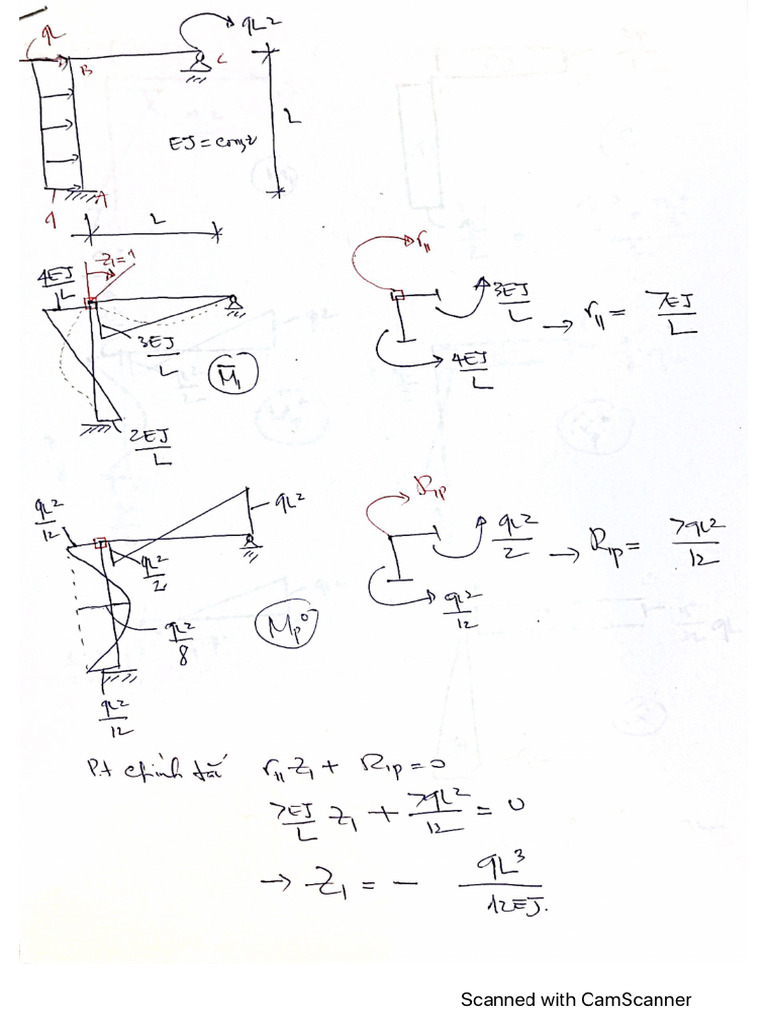 qL
qL²
B
C
L
EJ = const
q
A
L
Z₁=1
4EJ/L
3EJ/L
M̄₁
2EJ/L
r₁₁
3EJ/L
4EJ/L
→ r₁₁ = 7EJ/L
qL²/12
qL²
qL²/2
qL²/8
Mp⁰
qL²/12
R₁p
qL²/2
qL²/12
→ R₁p = 7qL²/12
P.t chính tắc r₁₁Z₁ + R₁p = 0
7EJ/L Z₁ + 7qL²/12 = 0
→ Z₁ = - qL³/12EJ.
Scanned with CamScanner